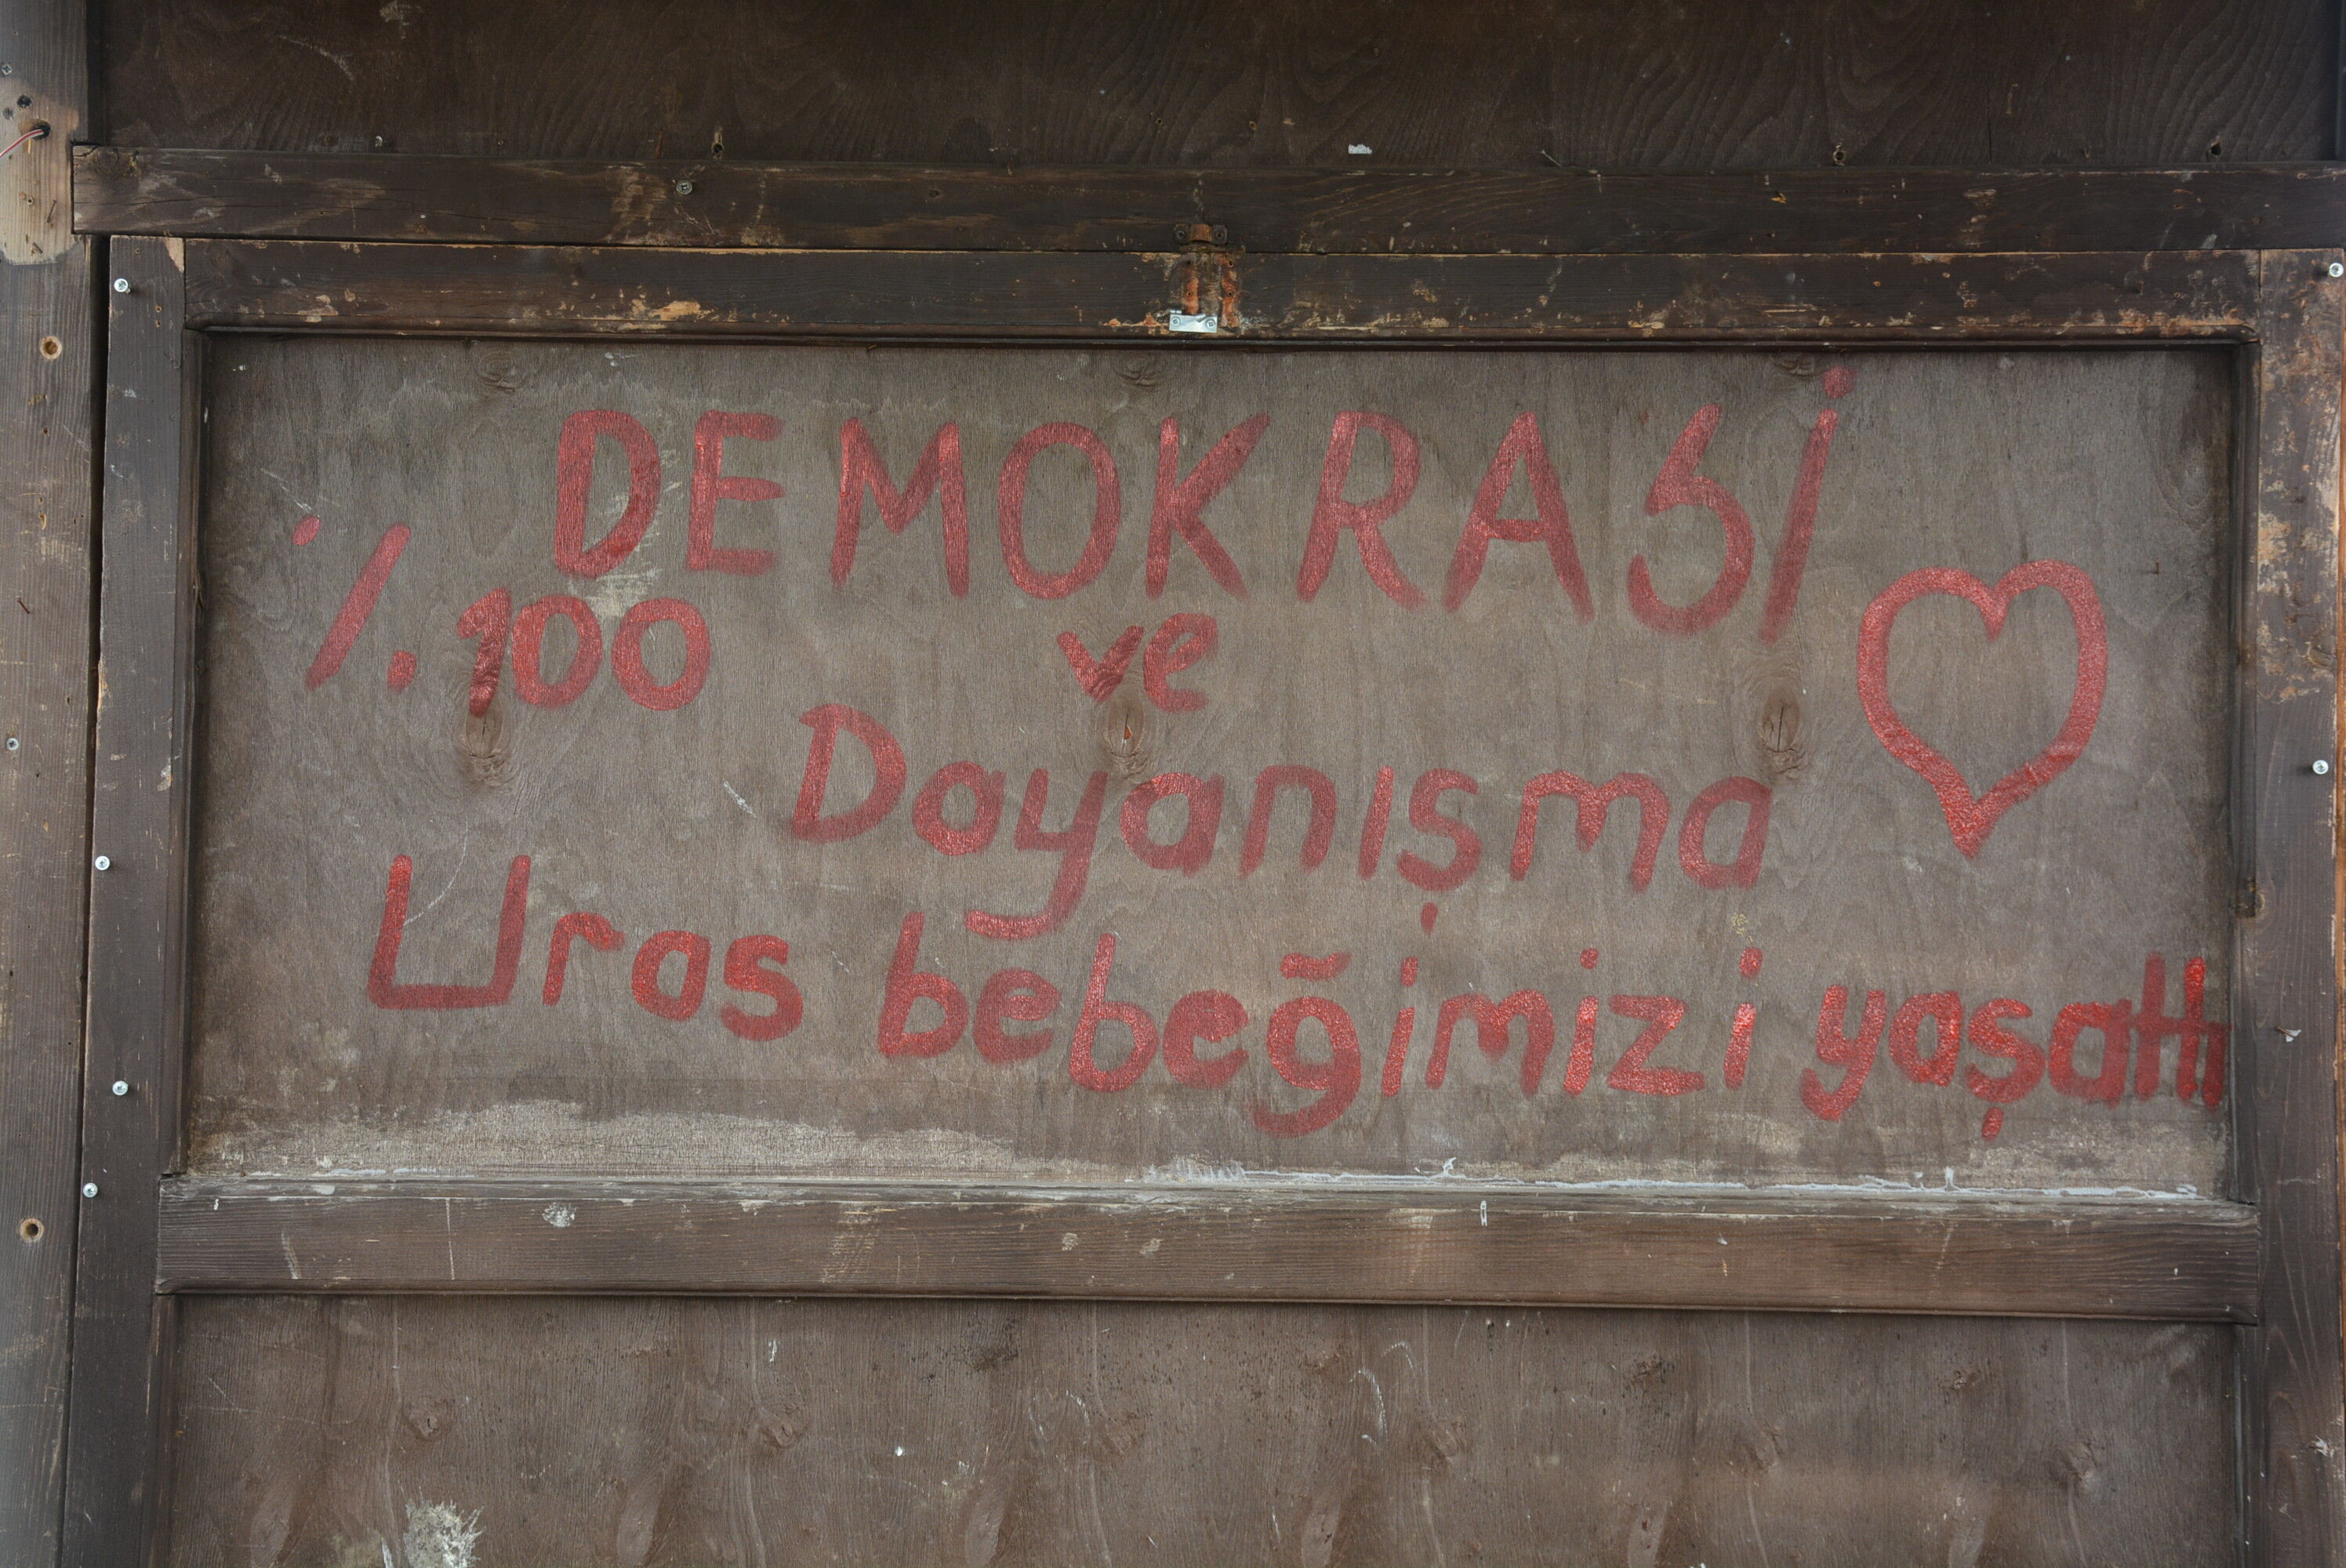 DEMOKRASİ
%100 ve
Dayanışma
Uras bebeğimizi yaşattı